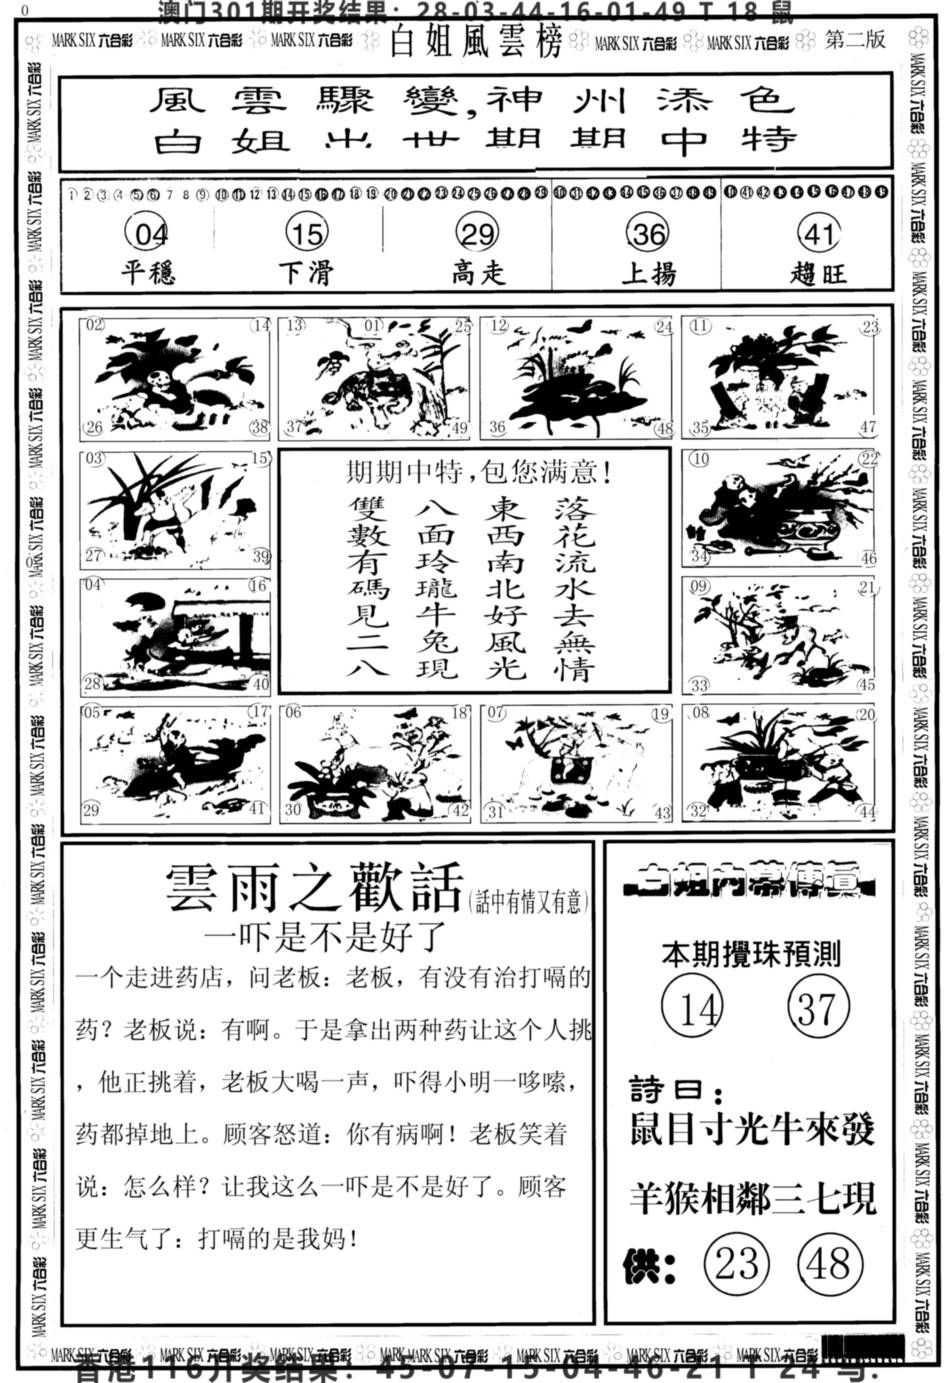 0
澳门301期开奖结果：28-03-44-16-01-49 T 18 鼠
MARK SIX 六合彩 MARK SIX 六合彩 MARK SIX 六合彩 白姐風雲榜 MARK SIX 六合彩 MARK SIX 六合彩 第二版
風雲驟變,神州添色
白姐出世期期中特
1 2 3 4 5 6 7 8 9 10 11 12 13 14 15 16 17 18 19 20 21 22 23 24 25 26 27 28 29 30 31 32 33 34 35 36 37 38 39 40 41 42 43 44 45 46 47 48 49
04 15 29 36 41
平穩 下滑 高走 上揚 趨旺
02 14 13 01 25 12 24 11 23
26 38 37 49 36 48 35 47
03 15 10 22
27 39 34 46
04 16 09 21
28 40 33 45
05 17 06 18 07 19 08 20
29 41 30 42 31 43 32 44
期期中特,包您满意!
落花流水去無情
東西南北好風光
八面玲瓏牛兔現
雙數有碼見二八
雲雨之歡話(話中有情又有意)
一吓是不是好了
一个走进药店，问老板：老板，有没有治打嗝的
药？老板说：有啊。于是拿出两种药让这个人挑
，他正挑着，老板大喝一声，吓得小明一哆嗦，
药都掉地上。顾客怒道：你有病啊！老板笑着
说：怎么样？让我这么一吓是不是好了。顾客
更生气了：打嗝的是我妈！
白姐内幕傳真
本期攪珠預測
14 37
詩曰：
鼠目寸光牛來發
羊猴相鄰三七現
供： 23 48
MARK SIX 六合彩 MARK SIX 六合彩 MARK SIX 六合彩 MARK SIX 六合彩 MARK SIX 六合彩 MARK SIX 六合彩 MARK SIX 六合彩
香港116开奖结果：45-07-15-04-46-21 T 24 马.